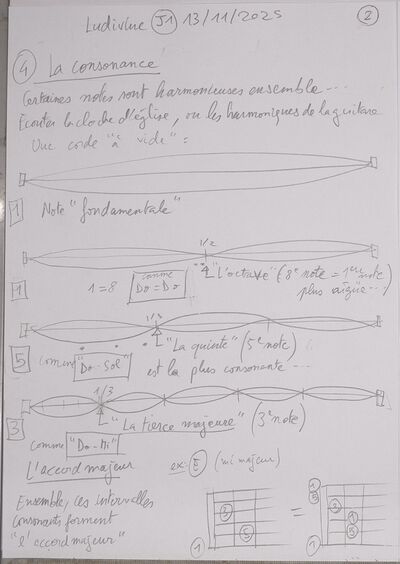 Ludivine J1 13/11/2025
2
4 La consonance
Certaines notes sont harmonieuses ensemble...
Ecouter la cloche d'église, ou les harmoniques de la guitare
Une corde "à vide" =
1 Note "fondamentale"
1/2
1 1=8 comme Do=Do "L'octave" (8e note = 1ere note
plus aigüe...)
1/3
5 comme "Do-Sol" "La quinte" (5e note)
est la plus consonante...
1/3
3 "La tierce majeure" (3e note)
comme "Do-Mi"
L'accord majeur ex: E (mi majeur)
Ensemble, ces intervalles
consonants forment
"l'accord majeur"
2
5
1
=
1
5
2
1
3
1